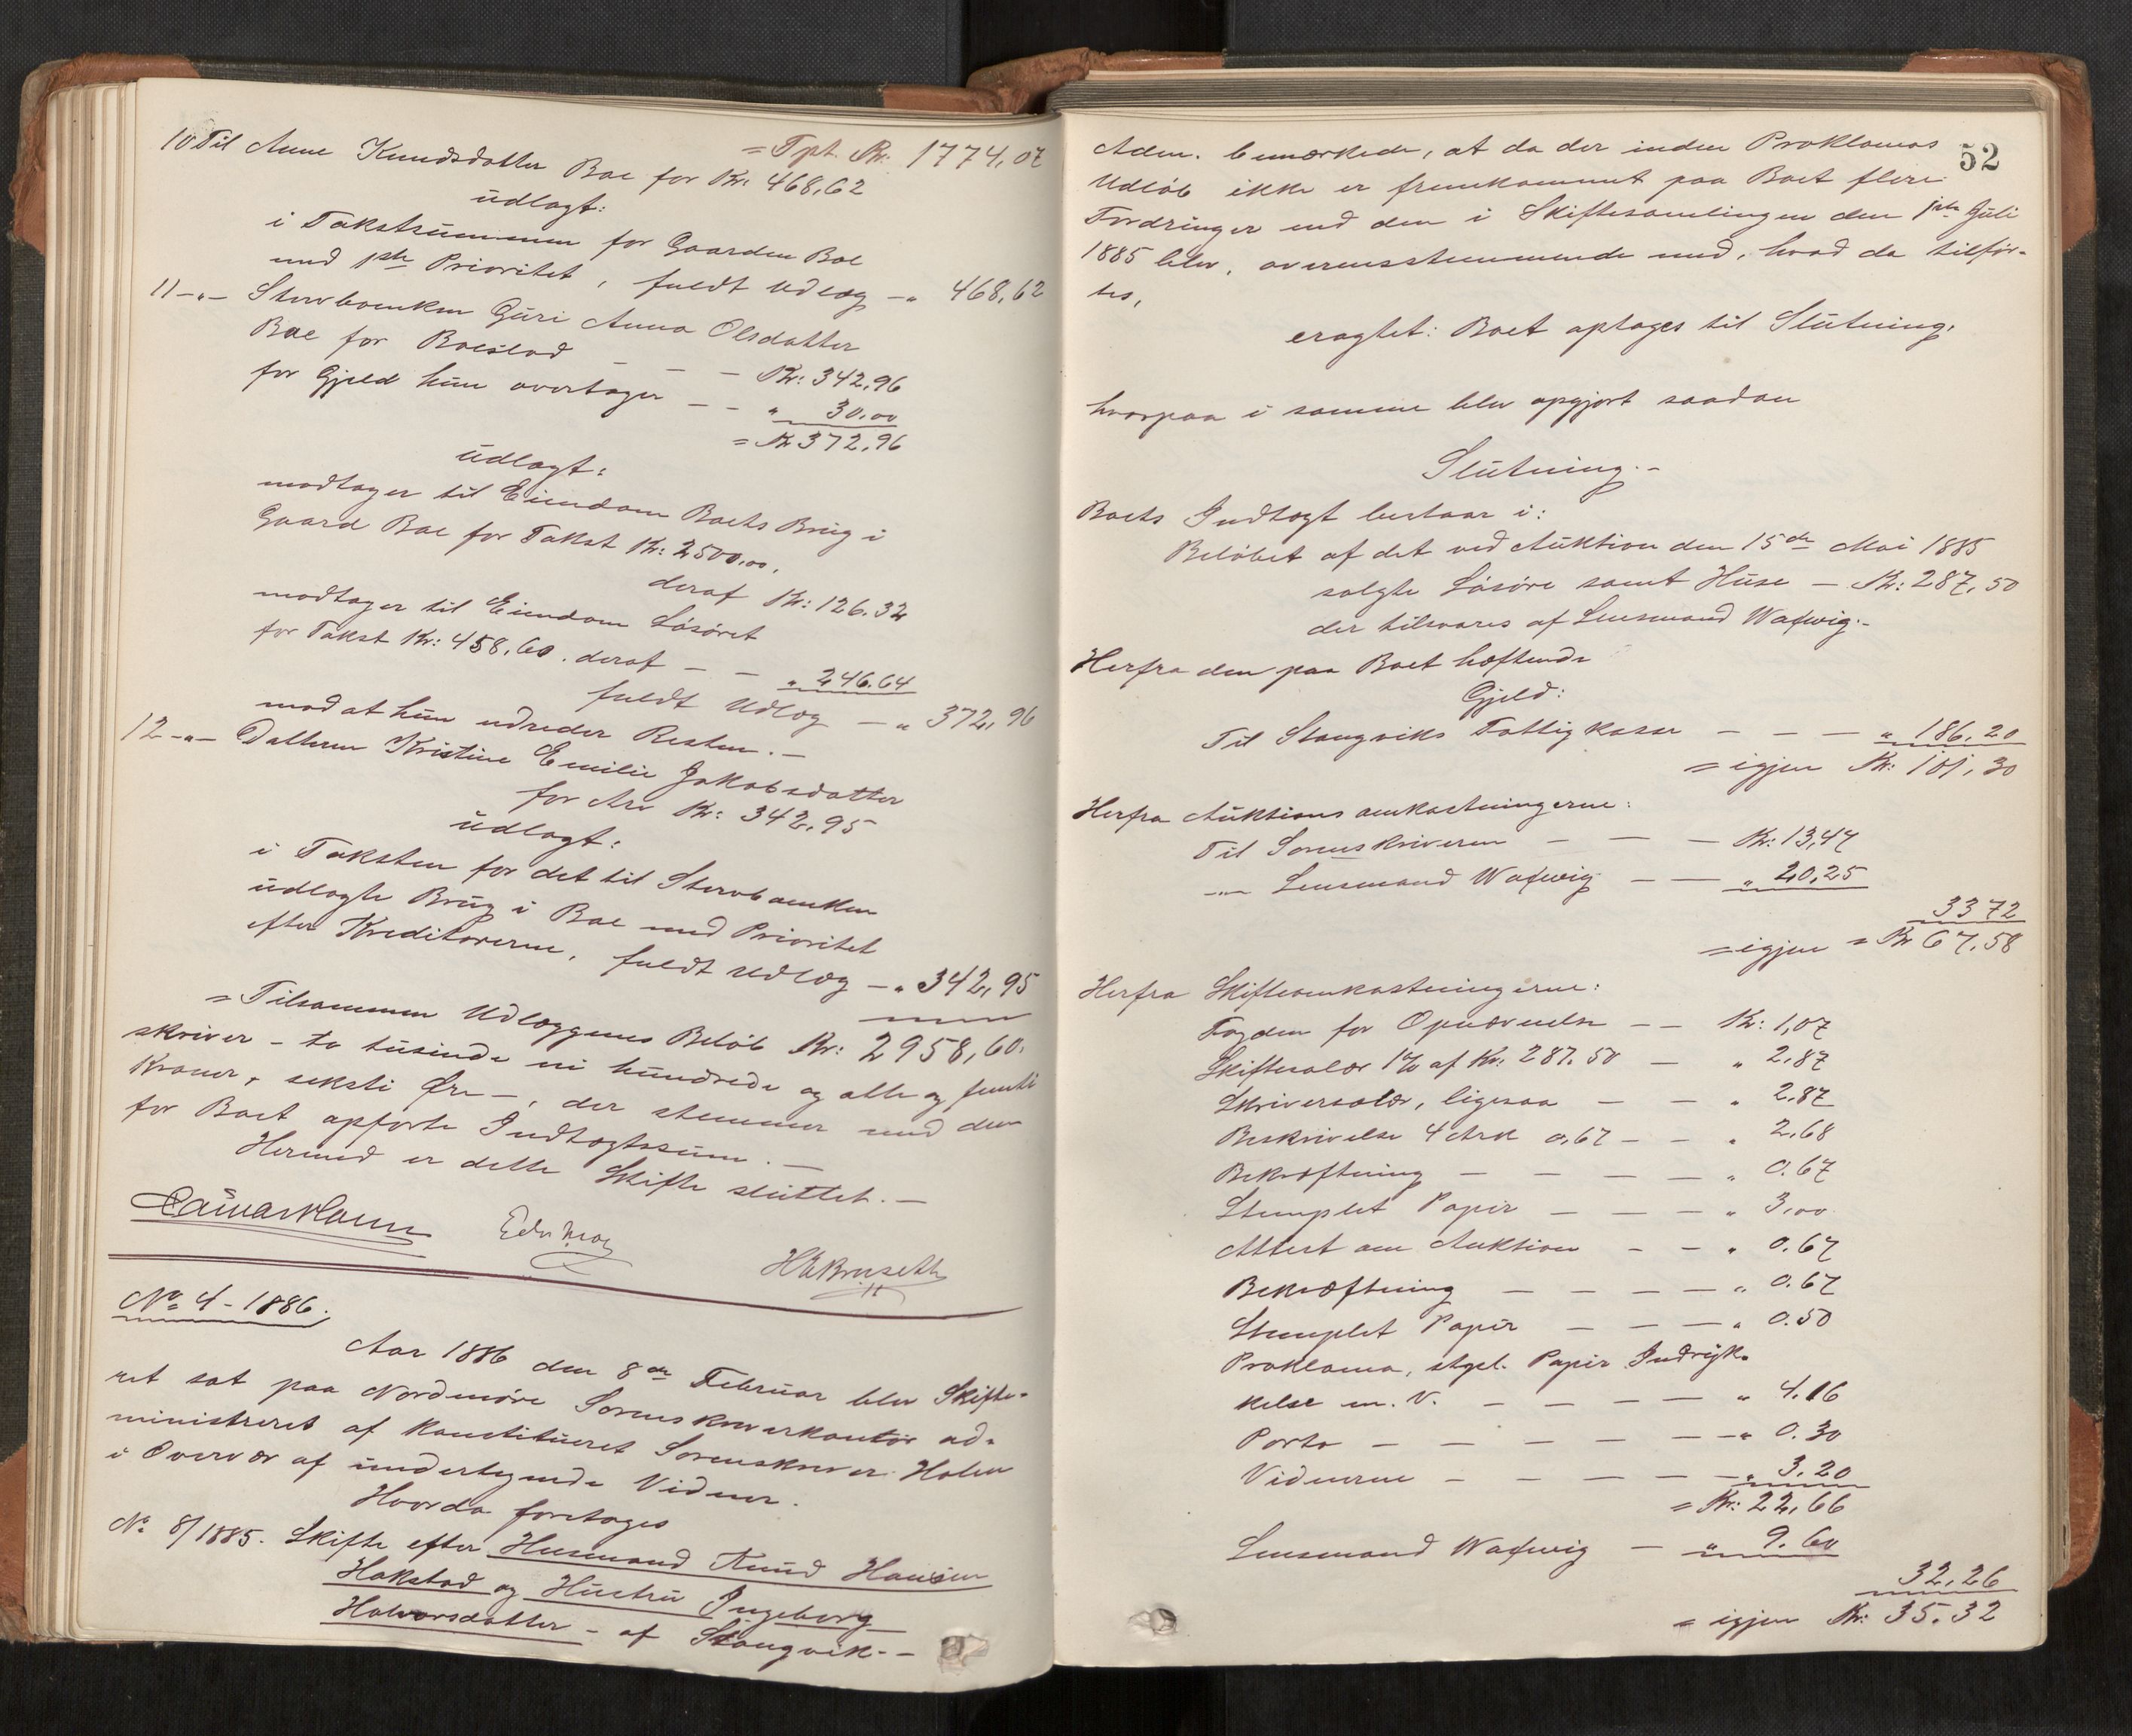 = Tpt. Kr. 1774,07
10 Til Anne Knudsdatter Boe for Kr. 468,62
udlagt:
i Takstsummen for Gaarden Boe
med 1ste Prioritet, fuldt Udlæg -„ 468,62
11 -„- Stervboenken Guri Anna Olsdatter
Boe for Boeslod – – Kr: 342,96
for Gjeld hun overtager – – „ 30,00
= Kr 372,96
udlagt:
modtager til Eiendom Boets Brug i
Gaard Boe for Takst Kr: 2500,00,
deraf Kr: 126.32
modtager til Eiendom Løsøret
for Takst Kr: 458,60. deraf – – „ 246.64
fuldt Udlæg – „ 372,96
mod at hun udreder Resten. –
12 -„- Datteren Kristine Emilie Jakobsdatter
for Arv Kr: 342,95
udlagt:
i Taksten for det til Stervboenken
udlagte Brug i Boe med Prioritet
efter Kreditorerne, fuldt Udlæg -„ 342,95
= Tilsammen Udlæggenes Beløb Kr: 2958,60.
skriver – to tusinde ni hundrede og otte og femti
Kroner, seksti Øre –, der stemmer med den
for Boet opførte Indtægtssum. –
Hermed er dette Skifte sluttet. –
No 4 - 1886.
Aar 1886 den 8de Februar blev Skifte-
ret sat paa Nordmøre Sorenskriverkontor ad-
ministreret af konstitueret Sorenskriver Holm
i Overvær af undertegnede Vidner.
Hvorda foretoges
No 8/1885. Skifte efter Husmand Knud Hansen
Hakstad og Hustru Ingeborg
Halvorsdatter – af Stangvik. –
52
Adm. bemærkede, at da der inden Proklamas
Udløb ikke er fremkommet paa Boet flere
Fordringer end den i Skiftesamlingen den 1ste Juli
1885 blev, overensstemmende med, hvad da tilfør-
tes,
eragtet: Boet optages til Slutning,
hvorpaa i samme blev opgjort saadan
Slutning. –
Boets Indtægt bestaar i:
Beløbet af det ved Auktion den 15de Mai 1885
solgte Løsøre samt Huse – Kr: 287,50
der tilsvares af Lensmand Waxwig. –
Herfra den paa Boet hæftende
Gjeld:
Til Stangviks Fattigkasse – – – „ 186,20
= igjen Kr: 101,30
Herfra Auktionsomkostningerne:
Til Sorenskriveren – – – Kr: 13,47
-„- Lensmand Waxwig – – „ 20,25
33 72
= igjen = Kr 67,58
Herfra Skifteomkostningerne:
Fogden for Opnævnelse – – Kr: 1,07
Skiftesalær 1% af Kr: 287.50 – „ 2,87
Skriversalær, ligesaa – – „ 2,87
Beskrivelse 4 Ark a 0,67 – – „ 2,68
Bekræftning – – – – „ 0.67
Stemplet Papir – – – „ 3,00
Attest om Auktion – – „ 0.67
Bekræftning – – – – „ 0.67
Stemplet Papir – – – „ 0.50
Proklama, stpl. Papir Indryk-
kelse m. V. – – – – „ 4.16
Porto – – – – – –„ 0.30
Vidnerne – – – – – „ 3.20
= Kr: 22,66
Lensmand Waxwig – „ 9.60
32,26
= igjen Kr: 35.32